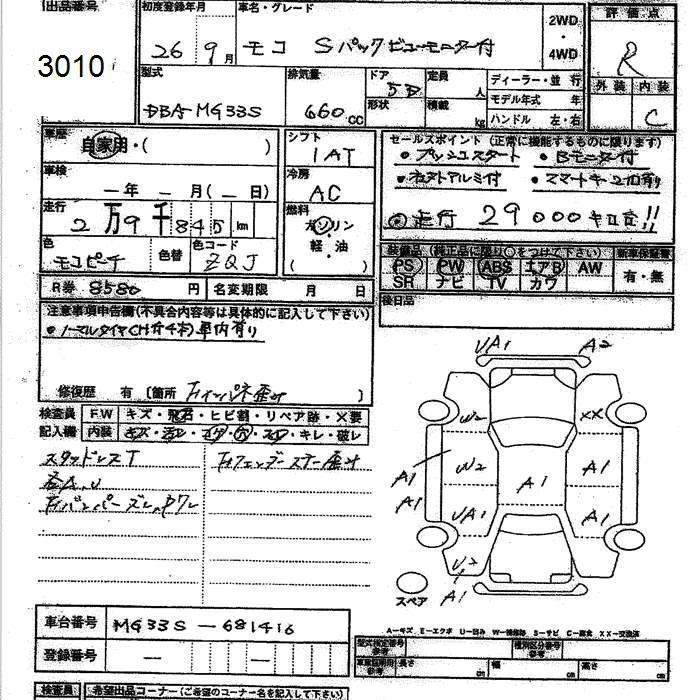 出品番号
3010
初度登録年月
26 9月
車名・グレード
モコ Sパックビューモニター付
2WD
・
4WD
評価点
R
外装 内装
C
型式
DBA-MG33S
排気量
660cc
ドア
5D
形状
定員
人
積載
kg
ディーラー・並行
モデル年式 年
ハンドル 左・右
車歴
自家用・( )
車検
ー年ー月(ー日)
走行
2万9千845km
色
モコピーチ
色替
色コード
ZQJ
シフト
IAT
冷房
AC
燃料
ガソリン
軽・油
( )
セールスポイント(正常に機能するものに限ります)
・プッシュスタート ・Bモニター付
・純正アルミ付 ・スマートキー2個有り
走行 29000キロ台!!
装備品(純正品に限り○をつけて下さい) 新車保証書
PS PW ABS エアB AW
SR ナビ TV カワ
有・無
R券 8580円 名変期限 月 日
後日品
注意事項申告欄(不具合内容等は具体的に記入して下さい)
・ノーマルタイヤCH付4本)車内有り
修復歴 有 〔箇所 〕
検査員
記入欄
FW キズ・飛石・ヒビ割・リペア跡・×要
内装 キズ・汚レ・コゲ・穴・スレ・キレ・破レ
スタッドレスT
各A.U
UA1 A2
W2 XX
A1 W2 A1 A1
A1 UA1 A1
A1
スペア
A-キズ E-エクボ U-凹み W-補修跡 S-サビ C-腐食 XX-交換済
車台番号 MG33S-681416
登録番号 ー ー
型式指定番号
参考
種別区分番号
参考
車庫証明用
参考
長さ cm 幅 cm 高さ cm
検査員 希望出品コーナー(ご希望のコーナー名を記入して下さい)